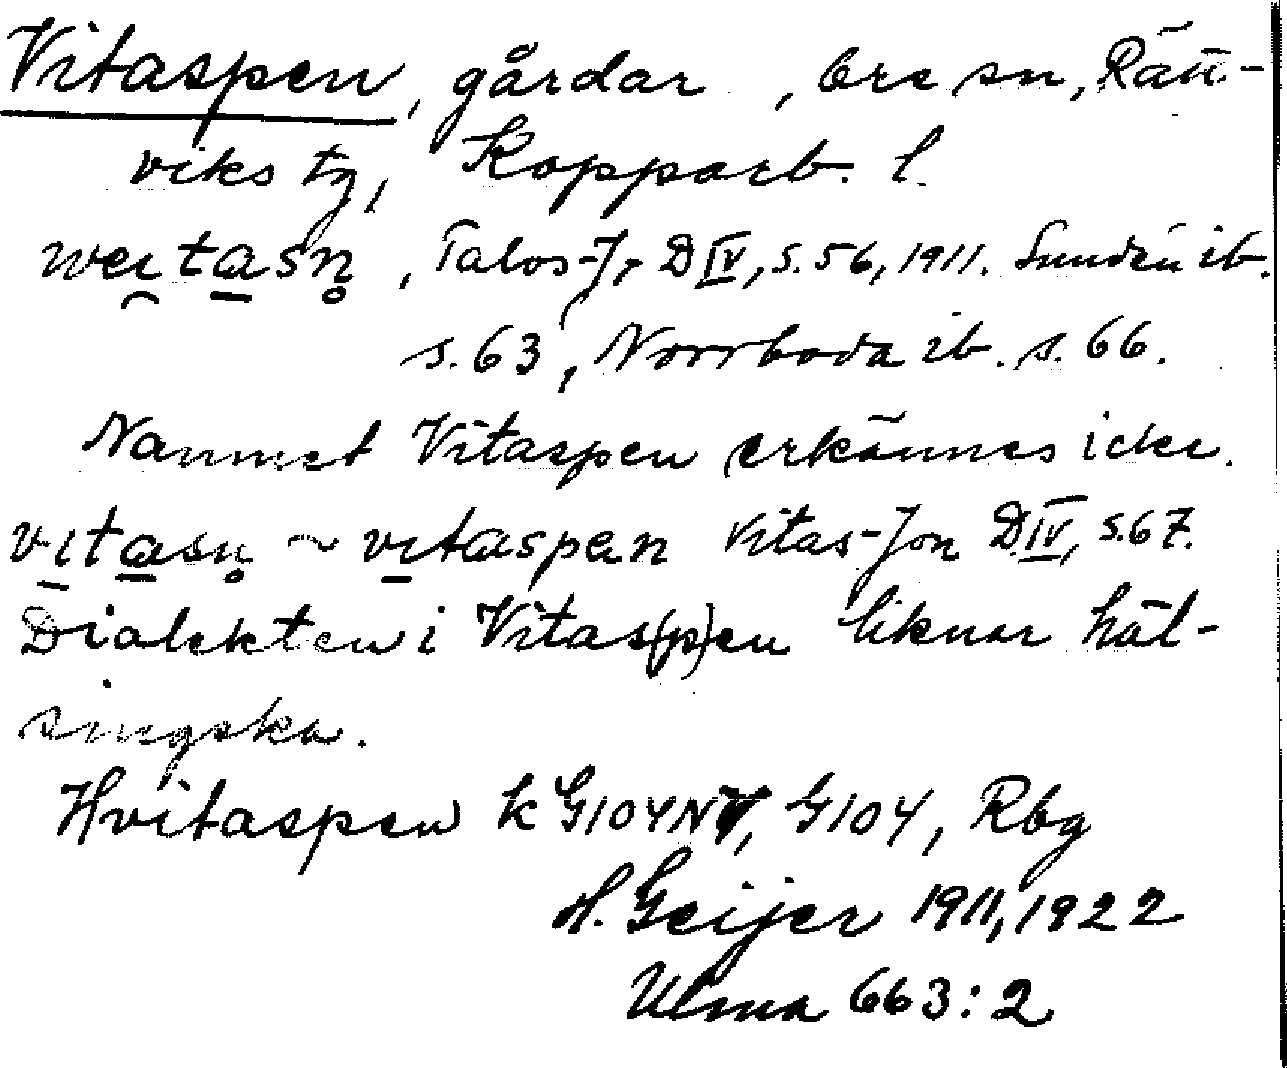 Vitaspen, gårdar, Ore sn, Rätt-
viks tg, Kopparb. l.
weitasn̥, Talos-J, D IV, s. 56, 1911. Sundén ib.
s. 63, Norrboda ib. s. 66.
Namnet Vitaspen erkännes icke.
vitasn̥ ~ vitaspen Vitas-Jon D IV, s. 67.
Dialekten i Vitas(p)en liknar häl-
singska.
Hvitaspen k G104NV, G104, Rbg
H. Geijer 1911, 1922
Ulma 663:2